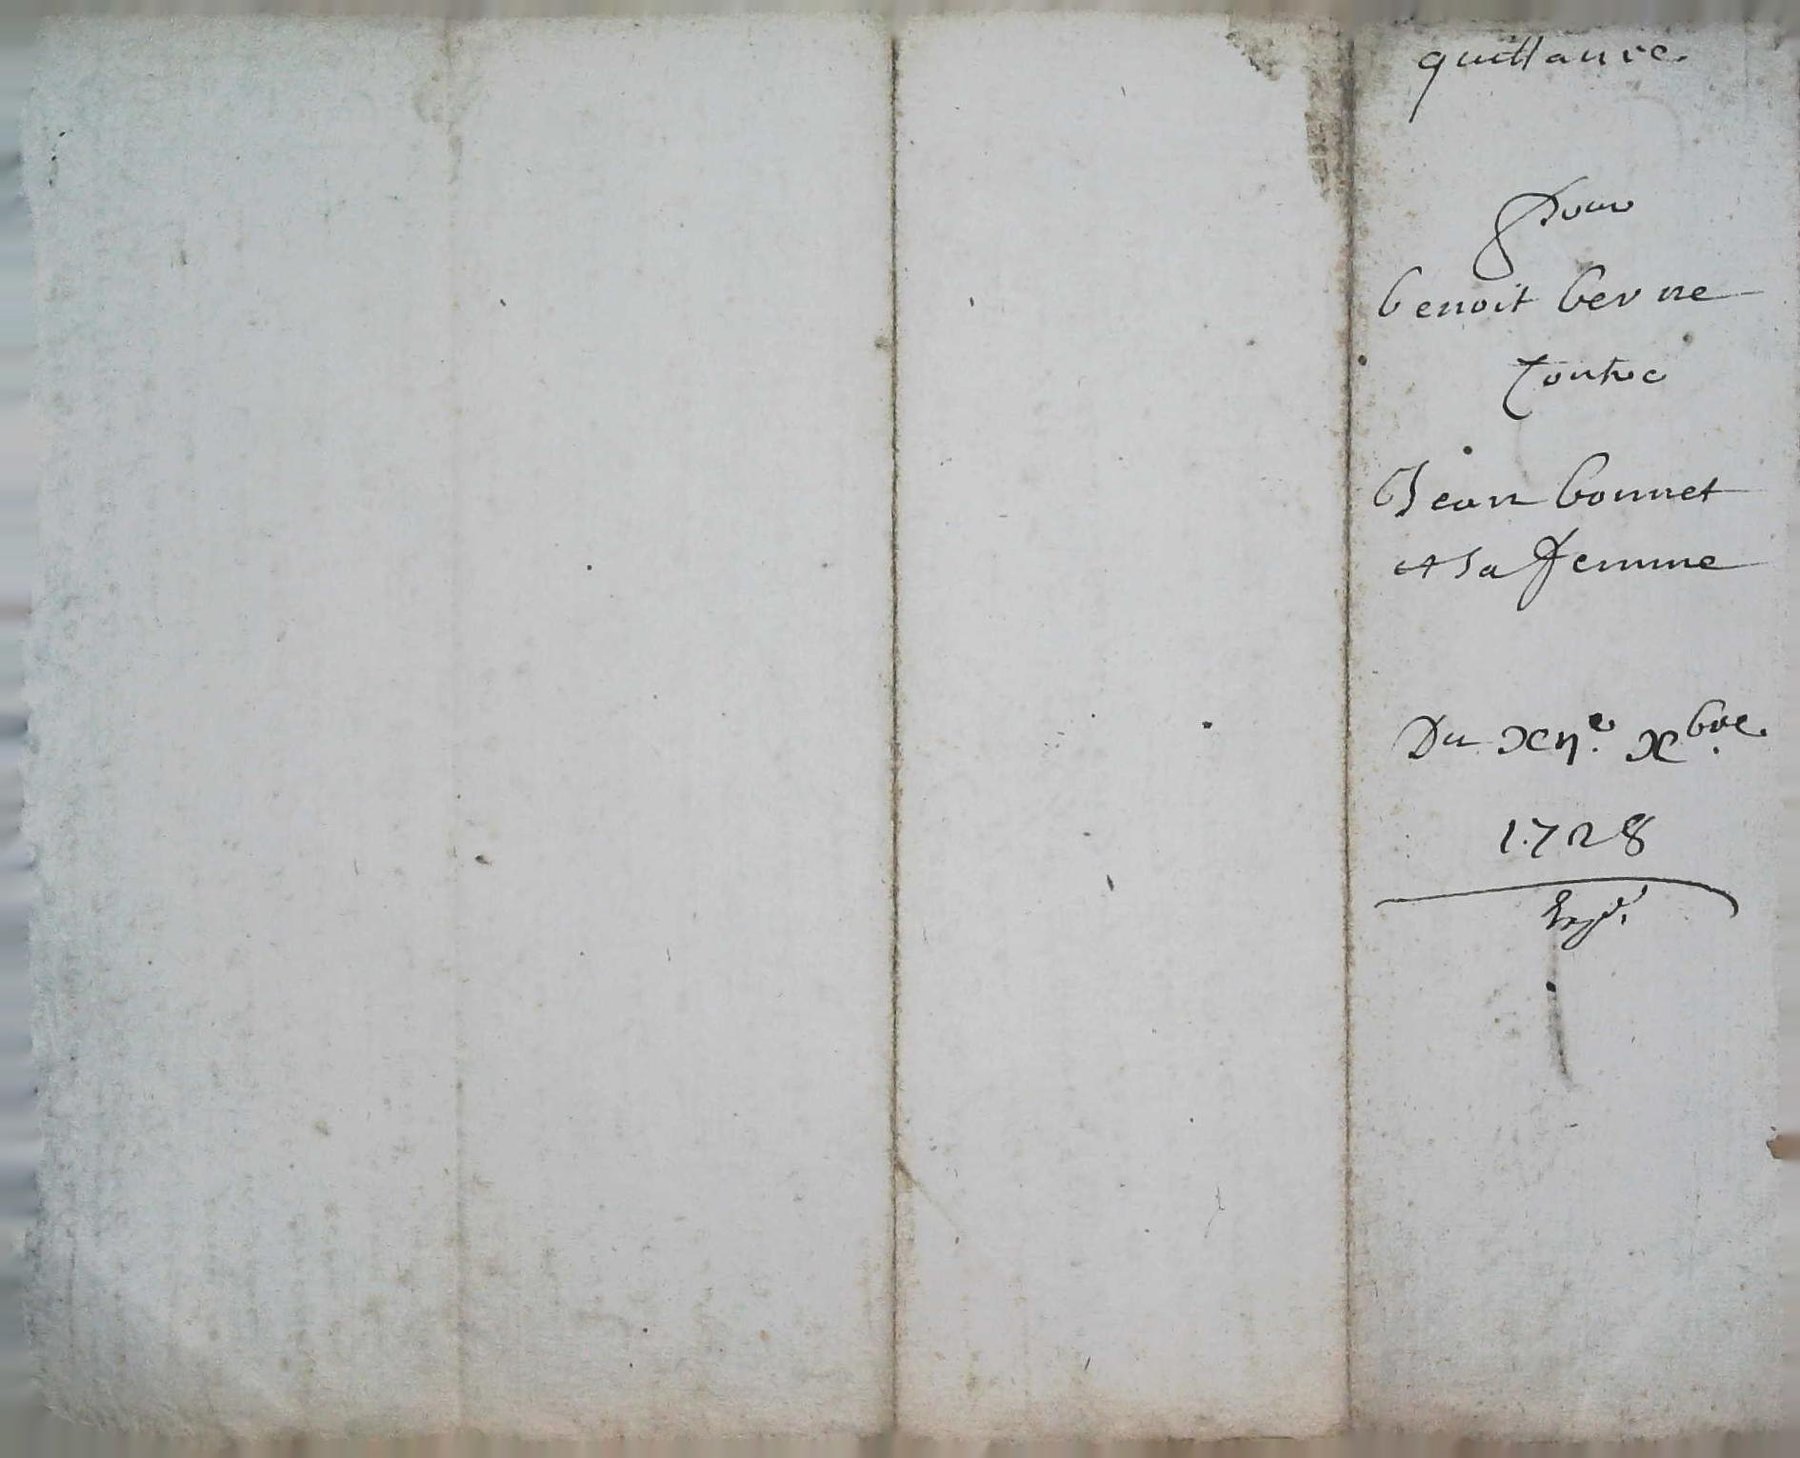 quittance.
Pour
benoit berne
Contre
Jean bonnet
et sa femme
Du xije. xbre.
1728
Expé.